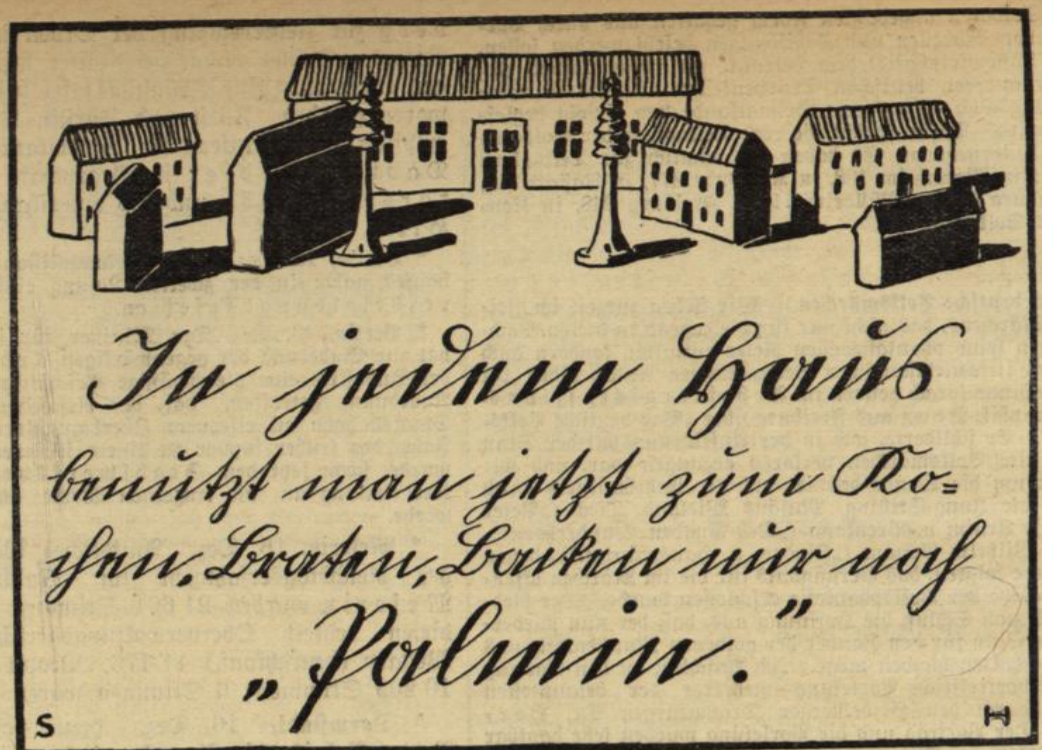 In jedem Haus
benutzt man jetzt zum Ko=
chen, Braten, Backen nur noch
„Palmin."
S H